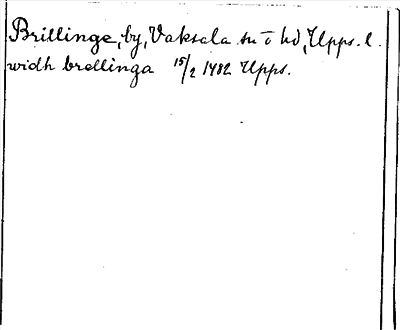 Brillinge, by, Vaksala sn i hd, Upps. l.
widh brellinga 15/2 1482 Upps.